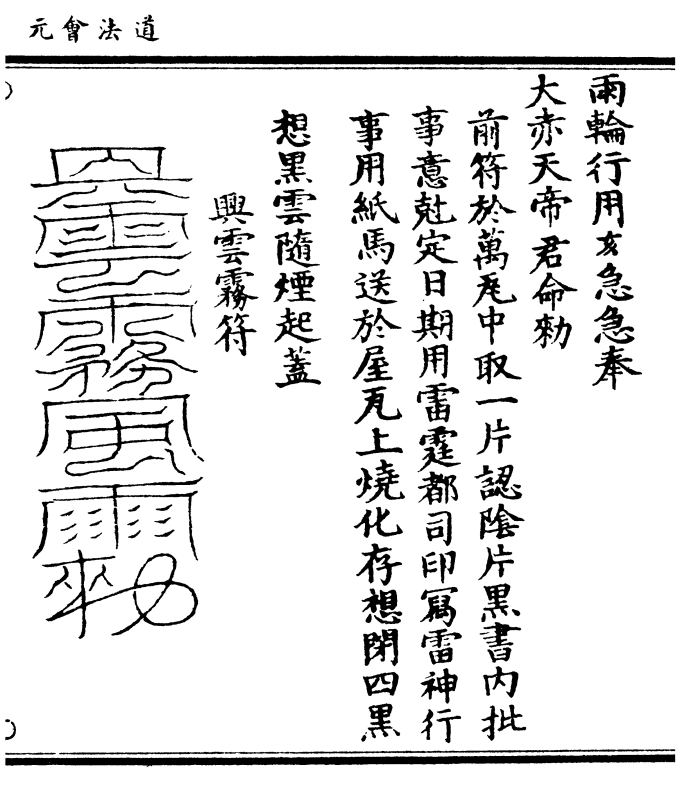 道法會元
雨輪行用亥急急奉
大赤天帝君命勑
前符於萬瓦中取一片認陰片黑書内批
事意尅定日期用雷霆都司印寫雷神行
事用紙馬送於屋瓦上燒化存想閉四黑
想黑雲隨煙起蓋
興雲霧符
雲霧風雨勑